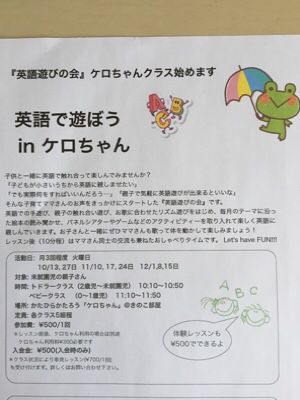 『英語遊びの会』ケロちゃんクラス始めます
ABC
英語で遊ぼう
in ケロちゃん
子供と一緒に英語で触れ合って楽しんでみませんか？
「子どもが小さいうちから英語に親しませたい」
「でも実際何をすればいいんだろう…」「親子で気軽に英語遊びが出来るといいな」
そんな子育てママさんのお声をきっかけにスタートした『英語遊びの会』です。
英語での手遊び、親子の触れ合い遊び、お歌に合わせたリズム遊びをはじめ、毎月のテーマに沿っ
た絵本の読み聞かせ、パネルシアターやゲームなどのアクティビティーを取り入れて楽しく英語に
親しんでいきます。お子さんと一緒にぜひママさんも歌って体を動かして楽しみましょう！
レッスン後（10分程）はママさん同士の交流も兼ねたおしゃべりタイムです。 Let's have FUN!!!
活動日：月3回程度 火曜日
10/13, 27日 11/10, 17, 24日 12/1,8,15日
対象：未就園児の親子さん
時間：トドラークラス（2歳児〜未就園児） 10:10〜10:50
ベビークラス （0〜1歳児） 11:10〜11:50
場所：かたひらかたろう「ケロちゃん」@きのこ部屋
定員：各クラス5組程
参加費：¥500/1回
＊レッスン前後、ケロちゃん利用の場合は別途
ケロちゃん利用料¥300必要です
入会金：¥500(入会時のみ)
＊クラス状況により単発レッスン(¥700/1回)
も受け付けます。詳しくはお問い合わせ下さい。
A B C
体験レッスンも
¥500でできるよ